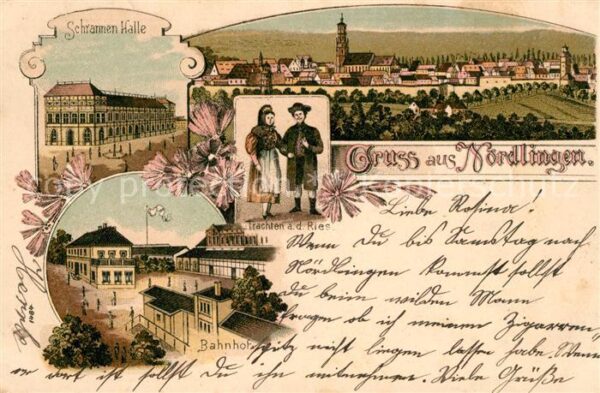 Schrannen Halle
Gruss aus Nördlingen.
Trachten a. d. Ries
Bahnhof
Liebe Rosina!
Wenn Du bis Samstag nach
Nördlingen kommst sollst
du beim wilden Mann
fragen ob ich meinen Zigarren,
spitz nicht liegen lassen habe. Wenn
er dort ist sollst du ihn mitnehmen. Viele Grüße
1484